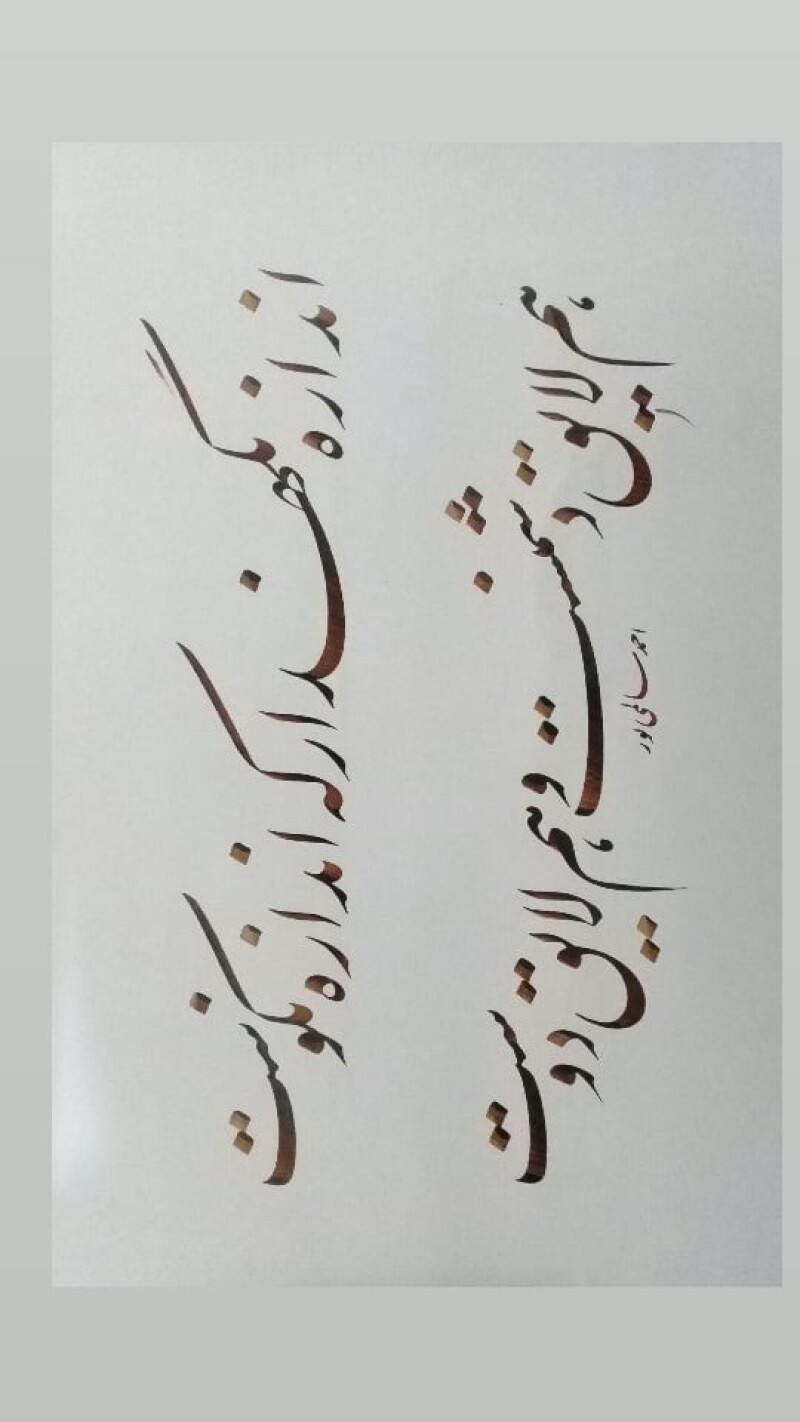 اندازه نگهدار که اندازه نکوست
هم لایق دشمنست و هم لایق دوست
احمد سالمی پور